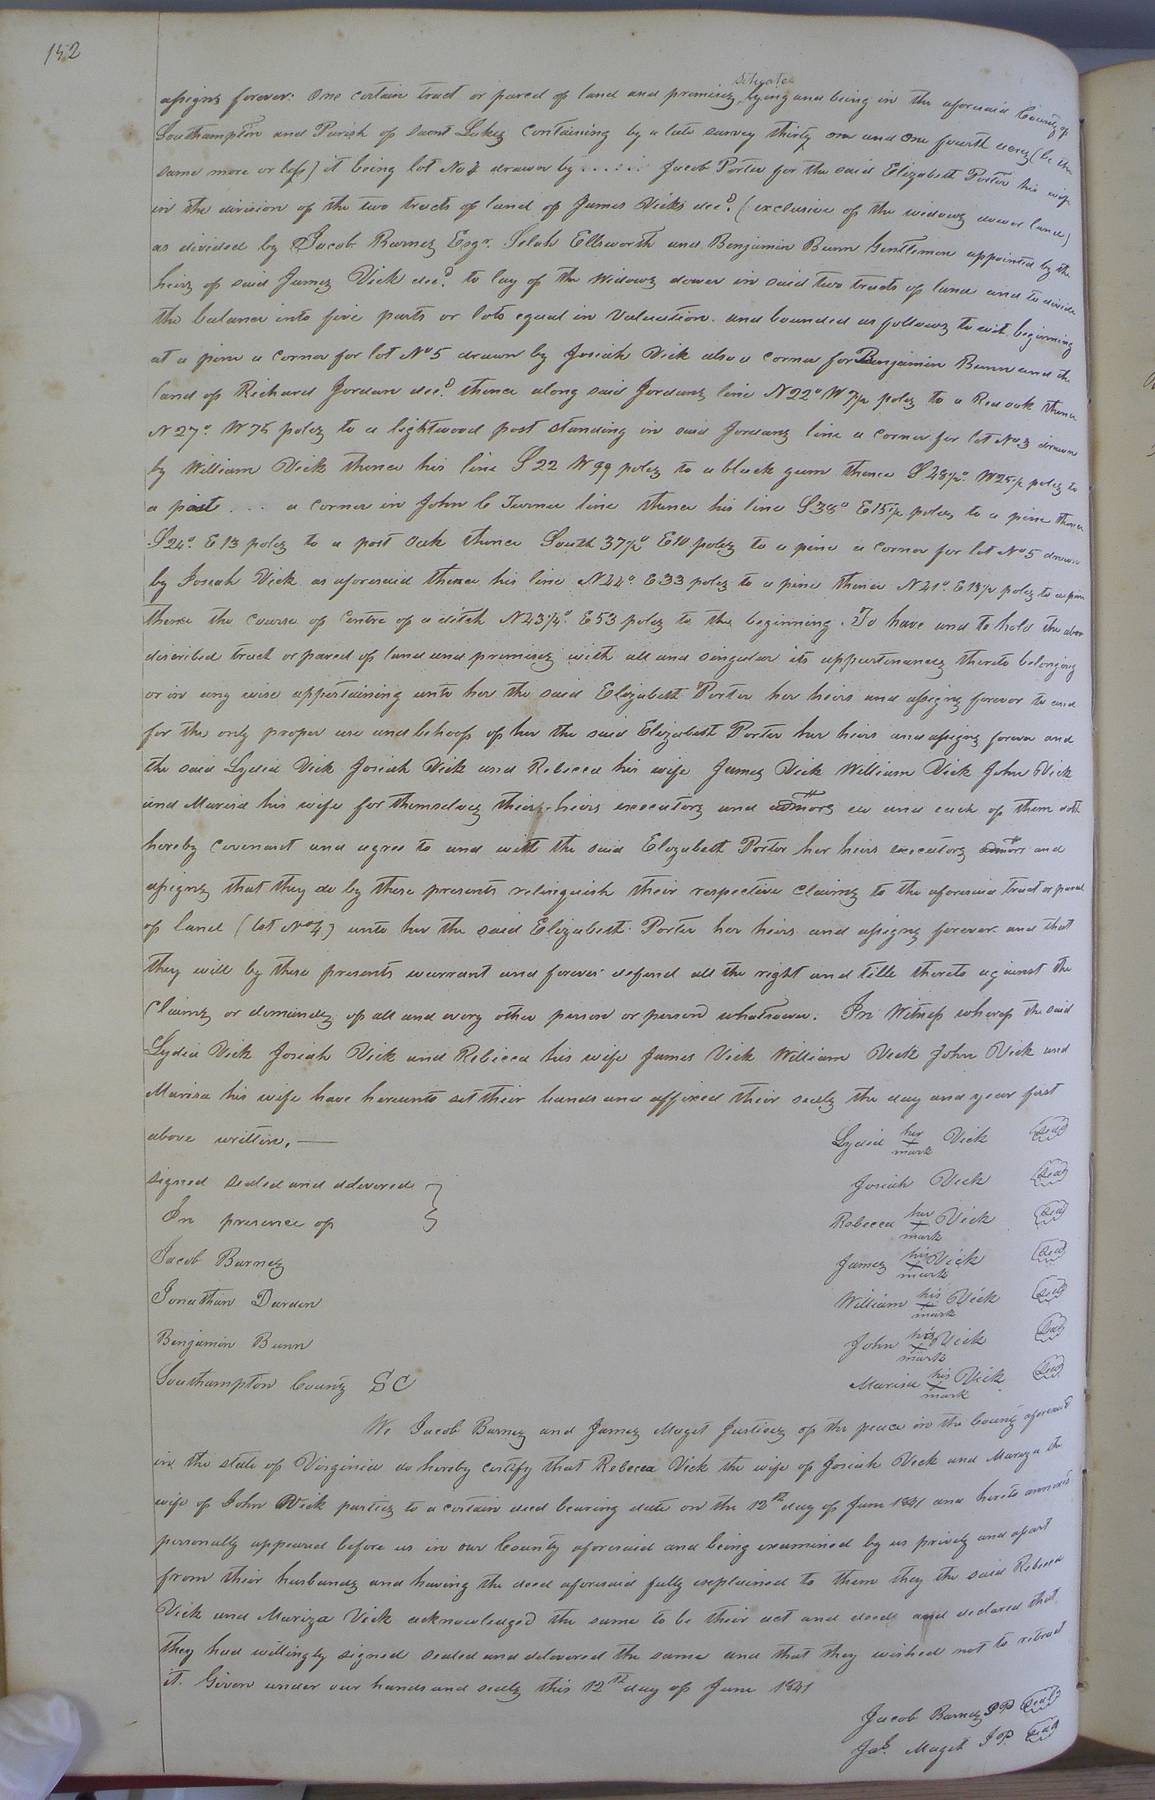 152
situate
assigns forever: One certain tract or parcel of land and premises, lying and being in the aforesaid County of
Southampton and Parish of saont Lukes containing by a late survey thirty one and one fourth acres (be the
same more or less) it being lot No 4 drawn by ...... Jacob Porter for the said Elizabeth Porter his wife
in the division of the two tracts of land of James Vicks decd. (exclusive of the widows dower land)
as divided by Jacob Barnes Esqr. Selah Ellsworth and Benjamin Bunn Gentlemen appointed by the
heirs of said James Vick decd. to lay of the Widows dower in said two tracts of land and to divide
the balance into five parts or lots equal in valuation. and bounded as follows to wit. beginning
at a pine a corner for lot No 5 drawn by Josiah Vick also a corner for Benjamin Bunn and the
land of Richard Jordan decd. thence along said Jordans line N 22° W poles to a Red oak thence
N 27°. W 75 poles to a lightwood post standing in said Jordans line a corner for lot No 3 drawn
by William Vick thence his line S 22 W 99 poles to a black gum thence S 48½°. W 25½ poles to
a post ... a corner in John C Turner line thence his line S 38° E 15½ poles to a pine thence
S 24°. E 13 poles to a post oak thence South 37½° E 10 poles to a pine a corner for lot No 5 drawn
by Josiah Vick as aforesaid thence his line N 44°. E 33 poles to a pine thence N 41°. E 13½ poles to a pine
thence the course of centre of a ditch N 43½°. E 53 poles to the beginning. To have and to hold the above
discribed tract or parcel of land and premises with all and singular its appurtenances thereto belonging
or in any wise appertaining unto her the said Elizabeth Porter her heirs and assigns forever to and
for the only proper use and behoof of her the said Elizabeth Porter her heirs and assigns forever and
the said Lydia Vick Josiah Vick and Rebecca his wife James Vick William Vick John Vick
and Marisa his wife for themselves their heirs executors and admors and each of them doth
hereby covenant and agree to and with the said Elizabeth Porter her heirs executors admors and
assigns that they do by these presents relinquish their respective claims to the aforesaid tract or parcel
of land (lot No 4) unto her the said Elizabeth Porter her heirs and assigns forever and that
they will by these presents warrant and forever defend all the right and title thereto against the
claims or demands of all and every other person or persons whatsoever. In Witness whereof the said
Lydia Vick Josiah Vick and Rebecca his wife James Vick William Vick John Vick and
Marisa his wife have hereunto set their hands and affixed their seals the day and year first
above written.
Lydia her + mark Vick Seal
signed sealed and delivered
Josiah Vick Seal
In presence of
Rebecca her + mark Vick Seal
Jacob Barnes
James his + mark Vick Seal
Jonathan Darden
William his + mark Vick Seal
Benjamin Bunn
John his + mark Vick Seal
Southampton County SC
Marisa his + mark Vick Seal
We Jacob Barnes and James Maget Justices of the peace in the County aforesaid
in the state of Virginia do hereby certify that Rebecca Vick the wife of Josiah Vick and Mariza the
wife of John Vick parties to a certain deed bearing date on the 12th day of June 1841 and hereto annexed
personally appeared before us in our County aforesaid and being examined by us privily and apart
from their husbands and having the deed aforesaid fully explained to them they the said Rebecca
Vick and Mariza Vick acknowledged the same to be their act and deed and declared that
they had willingly signed sealed and delivered the same and that they wished not to retract
it. Given under our hands and seals this 12th day of June 1841
Jacob Barnes JP Seal
Jas. Maget JP. Seal